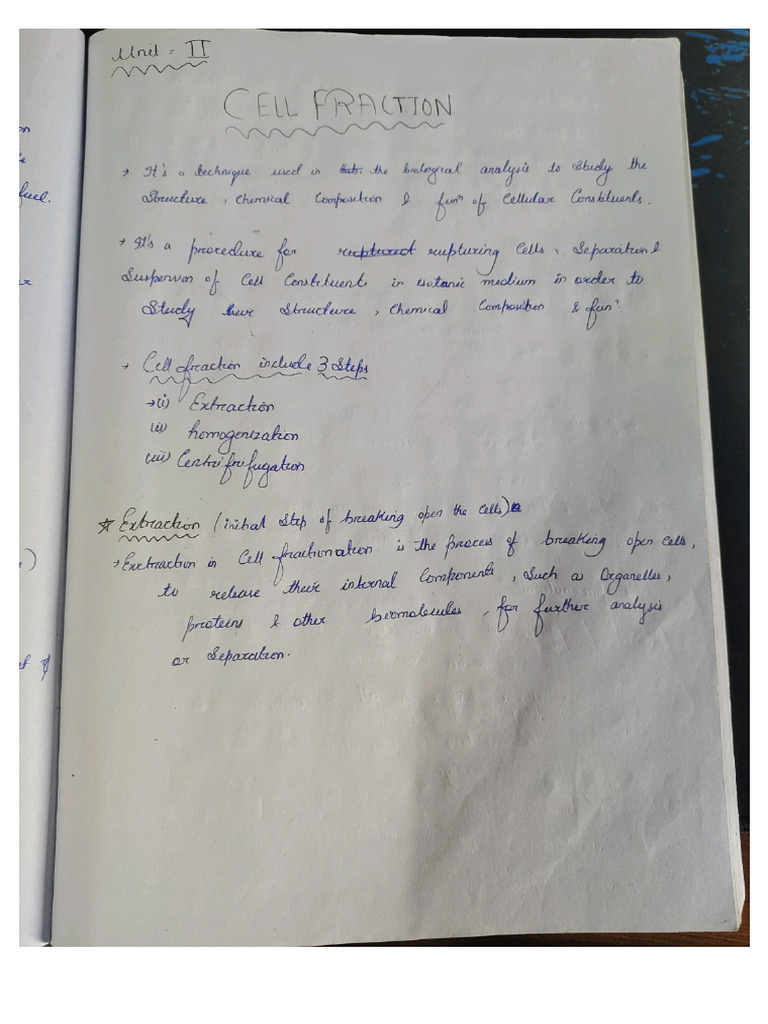 Unit = II
CELL FRACTION
→ It's a technique used in the biological analysis to study the
Structure, Chemical Composition & funⁿ of Cellular Constituents.
→ It's a procedure for ruptured rupturing Cells, Separation &
Suspension of Cell Constituents in isotanic medium in order to
Study their Structure, Chemical Composition & funⁿ.
→ Cell fraction include 3 Steps
→ (i) Extraction
(ii) homogenization
(iii) Centrifrifugation
☆ Extraction (initial Step of breaking open the Cells)
→ Exctraction in Cell fractionation is the process of breaking open cells,
to release their internal Components, Such as Organelles,
proteins & other biomolecules, for further analysis
or Separation.
fuel.